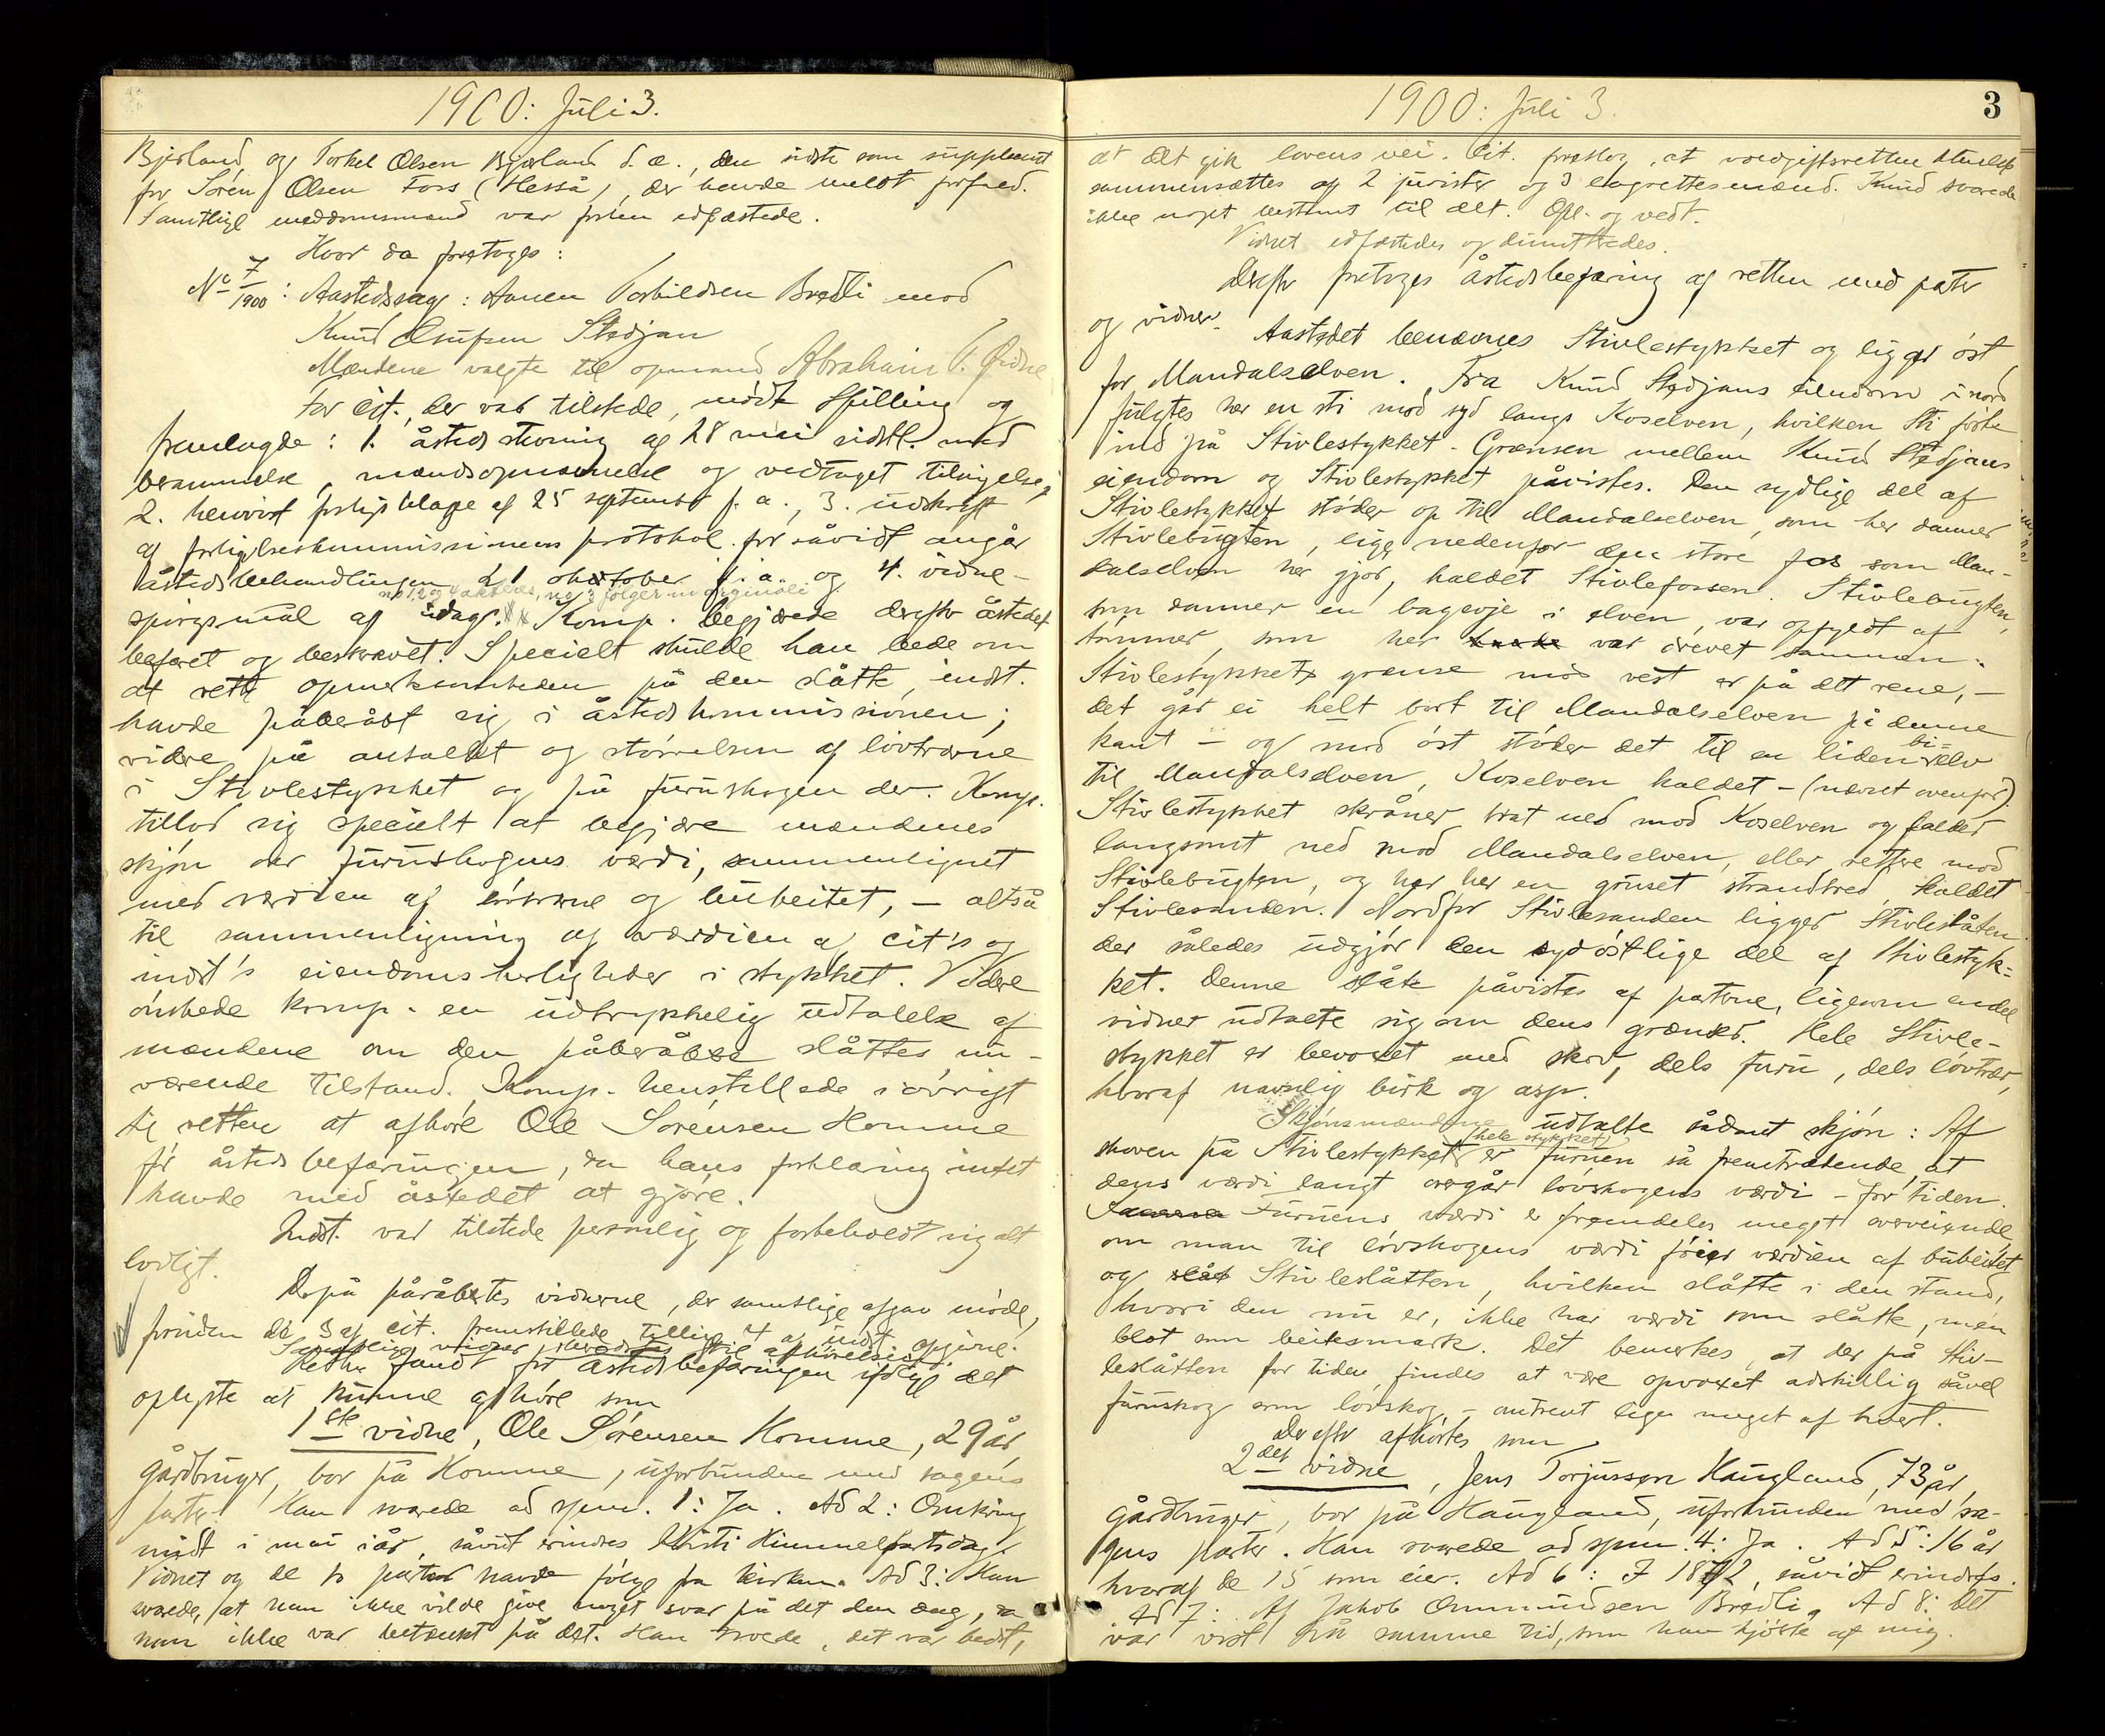 1900: Juli 3.
Bjerland, og Torkel Olsen Bjerland d. æ., den sidste som suppleant
for Sören Olsen Fors (Hesså), der havde meldt forfald.
Samtlige meddomsmænd var förhen edfæstede.
Hvor da foretoges:
No 7/1900: Aastedssag: Aanen Torkildsen Brødli mod
Knud Gnufsen Stedjan
Mændene valgte til opmand Abraham T. Øidne
For cit., der var tilstede, mödte Spilling og
fremlagde: 1. åstedsstevning af 28 mai sidstl. med
berammelse, mændsopnævnelse og vedtaget tilsigelse,
2. henvist forligsklage af 25 september f. a., 3. udskrift
af forligelseskommissionens protokol for såvidt angår
åstedsbehandlingen 21 oktober f. a. og 4. vidne-
no 1, 2 og 4 , no 3 følger in originali
spörgsmål af idag. Komp. begjærede derefter åstedet
befaret og beskrevet. Specielt skulde han bede om
at rette opmerksomheden på den slåtte, indst.
havde påberåbt sig i åstedskommissionen;
videre på antallet og störrelsen af lövtrærne
i Stivlestykket og på furuskogen der. Komp.
tillod sig specielt at begjære mændenes
skjön over furuskogens værdi, sammenlignet
med værdien af lövtrærne og bubeitet, – altså
til sammenligning af værdien af cit's og
indst's eiendomsherligheder i stykket. Videre
önskede komp. en udtrykkelig udtalelse af
mændene om den påberåbte slåttes nu-
værende tilstand. Komp. henstillede iövrigt
til retten at afhöre Ole Sörensen Homme
för åstedsbefaringen, da hans forklaring intet
havde med åstedet at gjöre.
Indst. var tilstede personlig og forbeholdt sig alt
lovligt.
Derpå påråbtes vidnerne, der samtlige afgav möde,
foruden de 3 af cit. fremstillede tillige 4 af indst. opgivne.
Samtlige vidner
Retten fandt för åstedsbefaringen ifölge det
oplyste at kunne afhöre som
1ste vidne, Ole Sörensen Homme, 29 år,
gårdbruger, bor på Homme, uforbunden med sagens
parter. Han svarede ad spm. 1: Ja. Ad 2: Omkring
midt i mai iår, såvidt erindres Kristi Himmelfartsdag.
Vidnet og de to parter havde fölge fra kirken. Ad 3: Han
svarede, at han ikke vilde give noget svar på det den dag, da
han ikke var betænkt på det. Han troede, det var bedst,
1900: Juli 3.
3
at det gik lovens vei. Cit. foreslog, at voldgiftsretten
sammensættes af 2 jurister og 3 lagrettesmænd. Knud svarede
ikke noget bestemt til det. Opl. og vedt.
Vidnet edfæstedes og dimitteredes.
Derefter foretoges åstedsbefaring af retten med parter
og vidner. Aastedet benævnes Stivlestykket og ligger öst
for Mandalselven. Fra Knud Stedjans eiendom i nord
fulgtes her en sti mod syd langs Koselven, hvilken sti förte
ind på Stivlestykket. Grænsen mellem Knud Stedjans
eiendom og Stivlestykket påvistes. Den sydlige del af
Stivlestykket stöder op til Mandalselven, som her danner
Stivlebugten, lige nedenfor den store fos som Man-
dalselven her gjör, kaldet Stivlefossen. Stivlebugten,
som danner en bagevje i elven, var opfyldt af
tömmer, som her var drevet sammen.
Stivlestykkets grænse mod vest er på det rene, –
det går ei helt bort til Mandalselven på denne
kant – og mod öst stöder det til en liden bi-elv
til Mandalselven, Koselven kaldet – (nævnt ovenfor).
Stivlestykket skråner brat ned mod Koselven og falder
langsomt ned mod Mandalselven, eller rettere mod
Stivlebugten, og har her en gruset strandbred, kaldet
Stivlesanden. Nordfor Stivlesanden ligger Stivleslåtten
der således udgjör den sydöstlige del af Stivlestyk-
ket. Denne slåtte påvistes af parterne, ligesom endel
vidner udtalte sig om dens grænser. Hele Stivle-
stykket er bevoxet med skov, dels furu, dels lövtrær,
hvoraf navnlig birk og asp.
Skjönsmændene udtalte sådant skjön: Af
skoven på Stivlestykket (hele stykket) er furuen så fremtrædende, at
dens værdi langt overgår lövskogens værdi – for tiden.
Furuens værdi er fremdeles meget overveiende
om man til lövskogens værdi föier værdien af bubeitet
og slåt Stivleslåtten, hvilken slåtte i den stand,
hvori den nu er, ikke har værdi som slåtte, men
blot som beitesmark. Det bemerkes, at der på Stiv-
leslåtten for tiden findes at være opvoxet adskillig såvel
furuskog som lövskog, – omtrent lige meget af hvert.
Derefter afhörtes som
2det vidne, Jens Torjussen Haugland, 73 år,
gårdbruger, bor på Haugland, uforbunden med sa-
gens parter. Han svarede ad spm. 4: Ja. Ad 5: 16 år
hvoraf de 15 som eier. Ad 6: I 1872, såvidt erindres.
Ad 7: Af Jakob Ommundsen Brødli. Ad 8: Det
var vist på samme tid, som han kjöbte af mig.